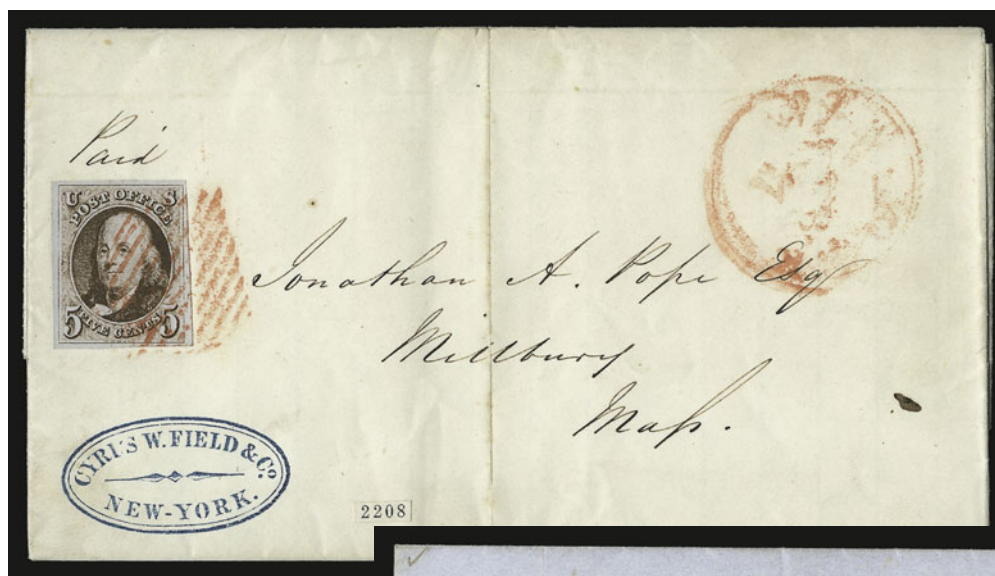 Paid
U S
POST OFFICE
5 FIVE CENTS 5
Jonathan A. Pope Esq
Millbury
Mass.
CYRUS W. FIELD & Co.
NEW-YORK.
2208